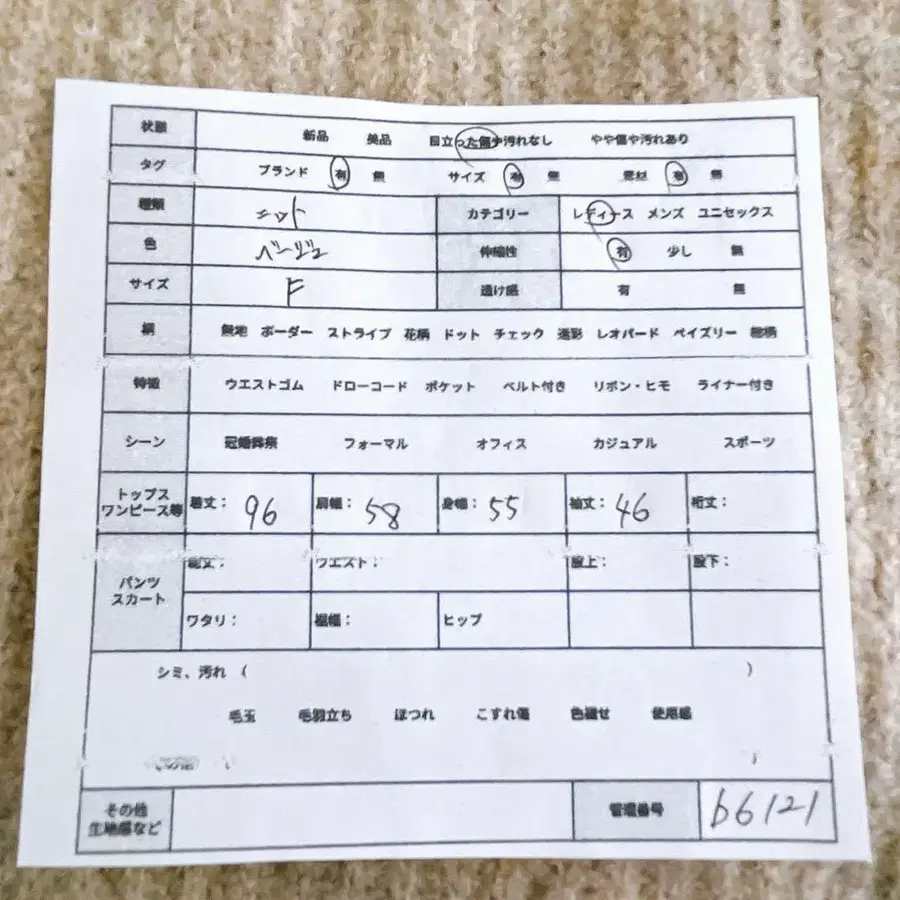 状態 新品 美品 目立った傷や汚れなし やや傷や汚れあり
タグ ブランド 有 無 サイズ 有 無 素材 有 無
種類 ニット カテゴリー レディース メンズ ユニセックス
色 ベージュ 伸縮性 有 少し 無
サイズ F 透け感 有 無
柄 無地 ボーダー ストライプ 花柄 ドット チェック 迷彩 レオパード ペイズリー 総柄
特徴 ウエストゴム ドローコード ポケット ベルト付き リボン・ヒモ ライナー付き
シーン 冠婚葬祭 フォーマル オフィス カジュアル スポーツ
トップス
ワンピース等 着丈: 96 肩幅: 58 身幅: 55 袖丈: 46 裄丈:
パンツ
スカート 総丈: ウエスト: 股上: 股下:
ワタリ: 裾幅: ヒップ
シミ、汚れ ( )
毛玉 毛羽立ち ほつれ こすれ傷 色褪せ 使用感
その他
生地感など 管理番号 b6121